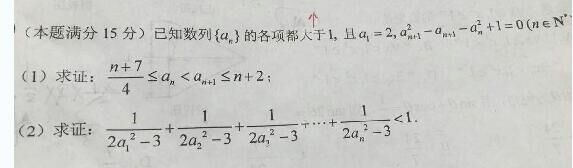 （本题满分 15 分）已知数列{aₙ}的各项都大于1, 且a₁=2, aₙ₊₁²−aₙ₊₁−aₙ²+1=0(n∈N*
（1）求证：(n+7)/4≤aₙ<aₙ₊₁≤n+2；
（2）求证：1/(2a₁²−3)+1/(2a₂²−3)+1/(2a₃²−3)+⋯+1/(2aₙ²−3)<1.